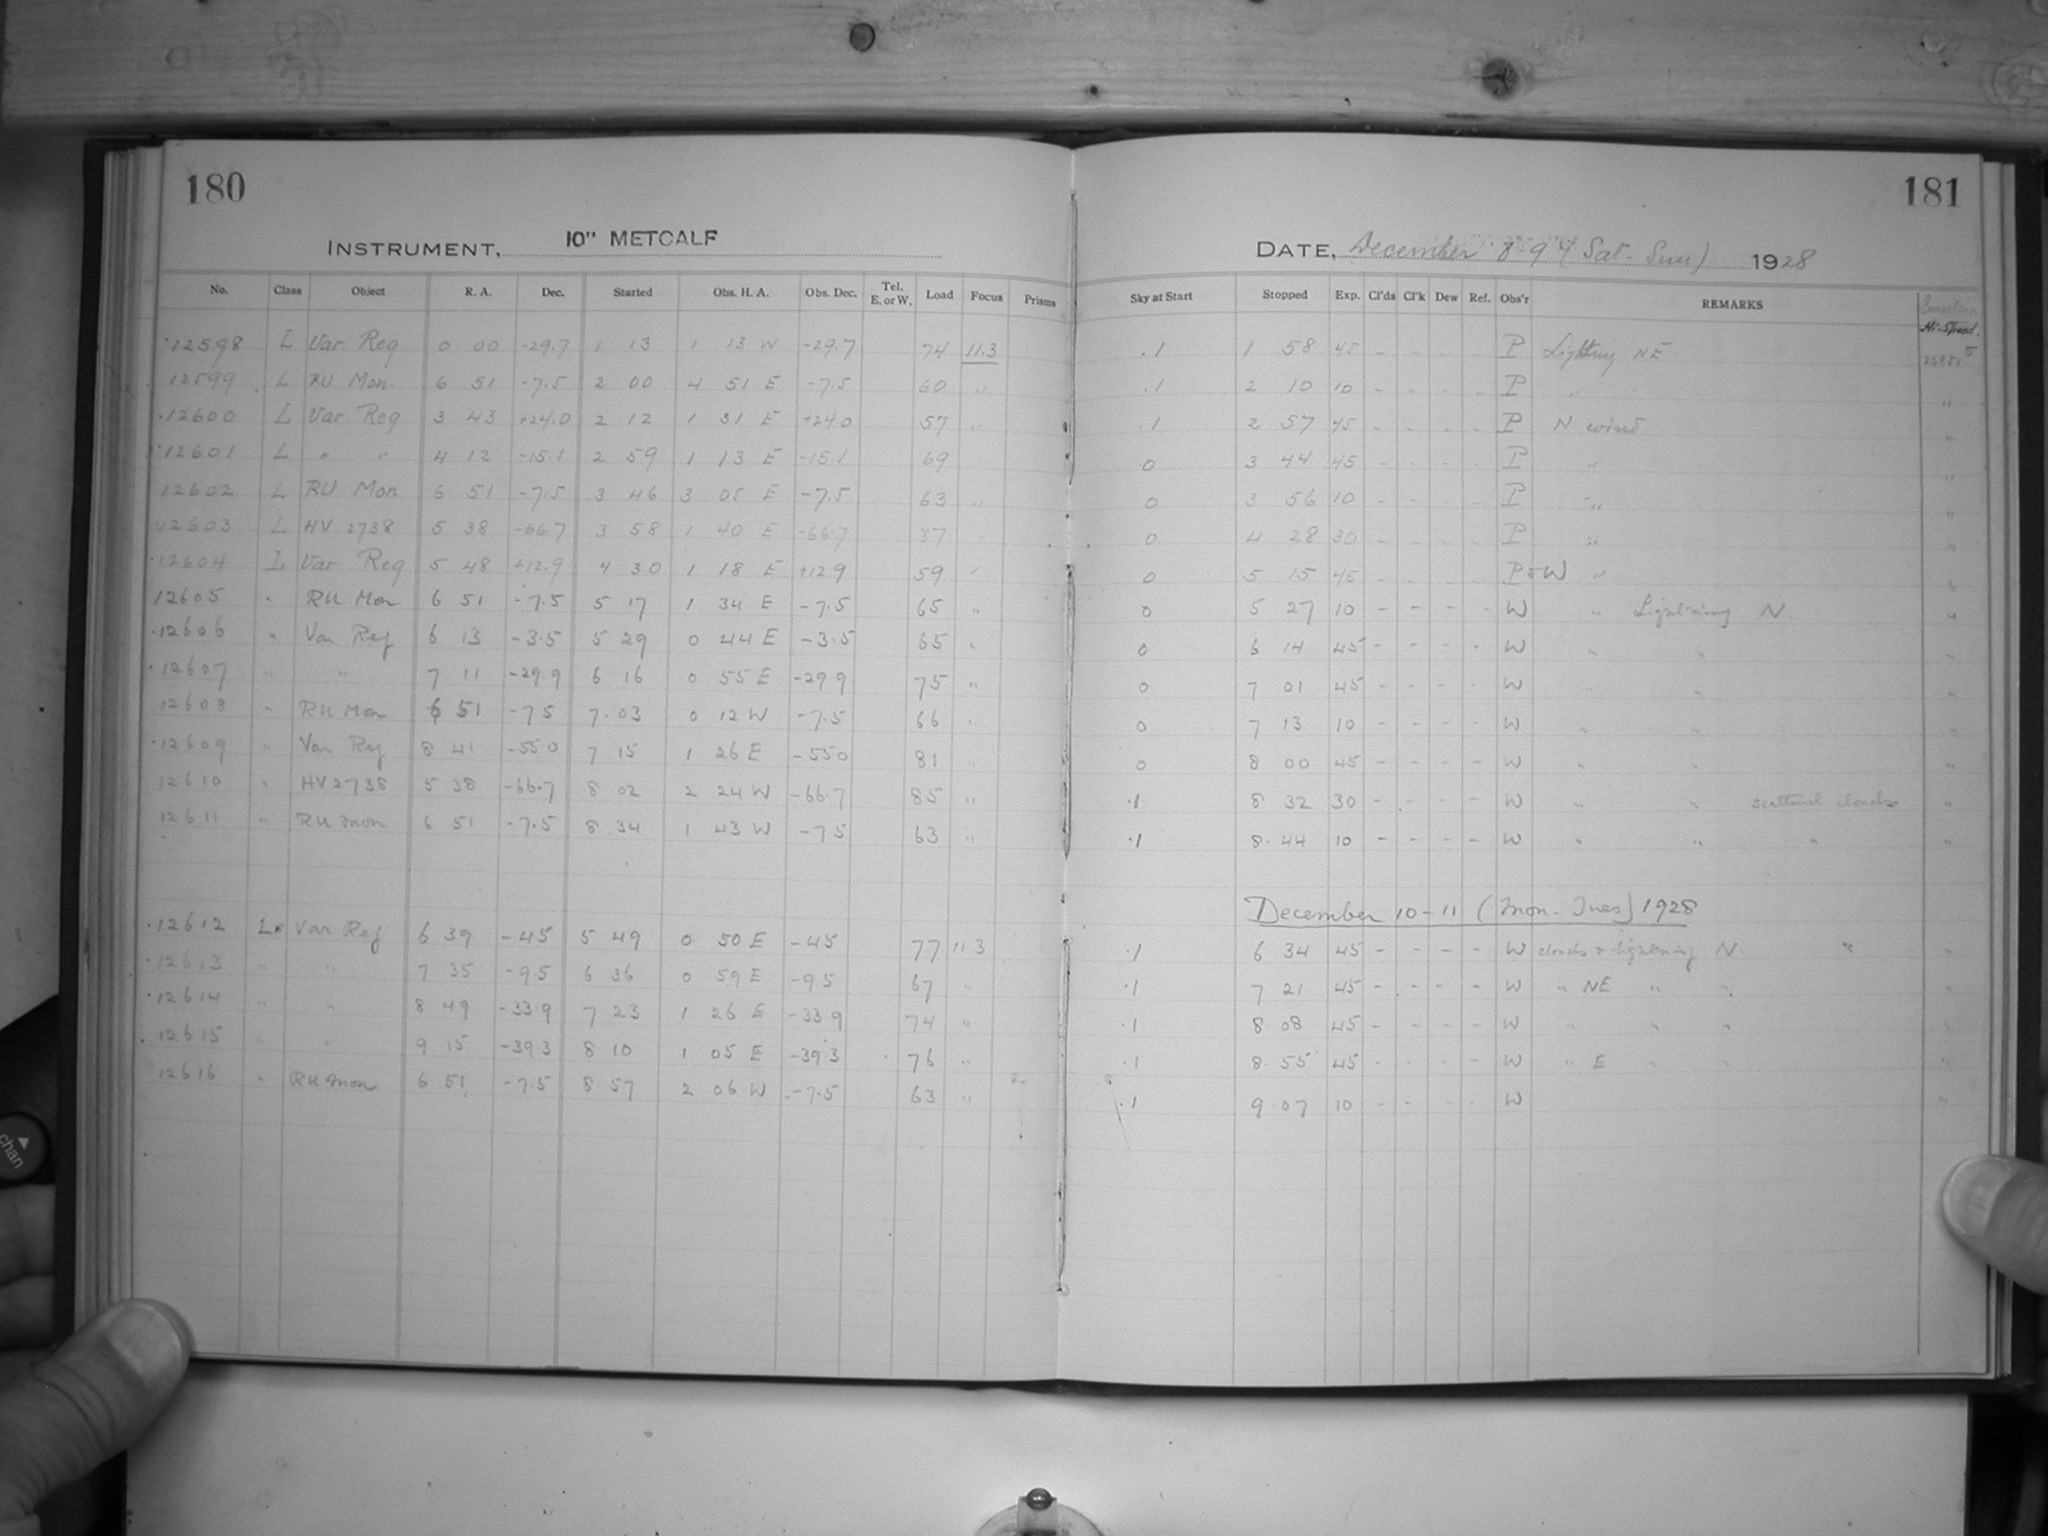 180
INSTRUMENT, 10" METCALF
No. Class Object R. A. Dec. Started Obs. H. A. Obs. Dec. Tel. E. or W. Load Focus Prisms
12598 L Var. Reg 0 00 -29.7 1 13 1 13 W -29.7 74 11.3
12599 L RU Mon. 6 51 -7.5 2 00 4 51 E -7.5 60 "
12600 L Var Reg 3 43 +24.0 2 12 1 31 E +24.0 57 "
12601 L " " 4 12 -15.1 2 59 1 13 E -15.1 69
12602 L RU Mon 6 51 -7.5 3 46 3 05 E -7.5 63 "
12603 L HV 2738 5 38 -66.7 3 58 1 40 E -66.7 87
12604 L Var Reg 5 48 +12.9 4 30 1 18 E +12.9 59 "
12605 " RU Mon 6 51 -7.5 5 17 1 34 E -7.5 65 "
12606 " Var Reg 6 13 -3.5 5 29 0 44 E -3.5 65 "
12607 " " 7 11 -29.9 6 16 0 55 E -29.9 75 "
12608 " RU Mon 6 51 -7.5 7 03 0 12 W -7.5 66 "
12609 " Var Reg 8 41 -55.0 7 15 1 26 E -55.0 81 "
12610 " HV 2738 5 38 -66.7 8 02 2 24 W -66.7 85 "
12611 " RU Mon 6 51 -7.5 8 34 1 43 W -7.5 63 "
12612 L Var Reg 6 39 -45 5 49 0 50 E -45 77 11.3
12613 " " 7 35 -9.5 6 36 0 59 E -9.5 67 "
12614 " " 8 49 -33.9 7 23 1 26 E -33.9 74 "
12615 " " 9 15 -39.3 8 10 1 05 E -39.3 76 "
12616 " RU Mon 6 51 -7.5 8 57 2 06 W -7.5 63 "
181
DATE, December 8-9 (Sat-Sun) 1928
Sky at Start Stopped Exp. Cl'ds Cl'k Dew Ref. Obs'r REMARKS Hi-Speed.
.1 1 58 45 - - - - P Lightning NE
.1 2 10 10 - - - - P " "
.1 2 57 45 - - - - P N wind "
0 3 44 45 - - - - P " "
0 3 56 10 - - - - P " "
0 4 28 30 - - - - P " "
0 5 15 45 - - - - P & W " "
0 5 27 10 - - - - W " Lightning N. "
0 6 14 45 - - - - W " " "
0 7 01 45 - - - - W " " "
0 7 13 10 - - - - W " " "
0 8 00 45 - - - - W " " "
.1 8 32 30 - - - - W " " scattered clouds "
.1 8 44 10 - - - - W " " " "
December 10-11 (Mon-Tues) 1928
.1 6 34 45 - - - - W clouds & lightning N. "
.1 7 21 45 - - - - W " NE " " "
.1 8 08 45 - - - - W " " " "
.1 8 55 45 - - - - W " E " " "
.1 9 07 10 - - - - W "
chan